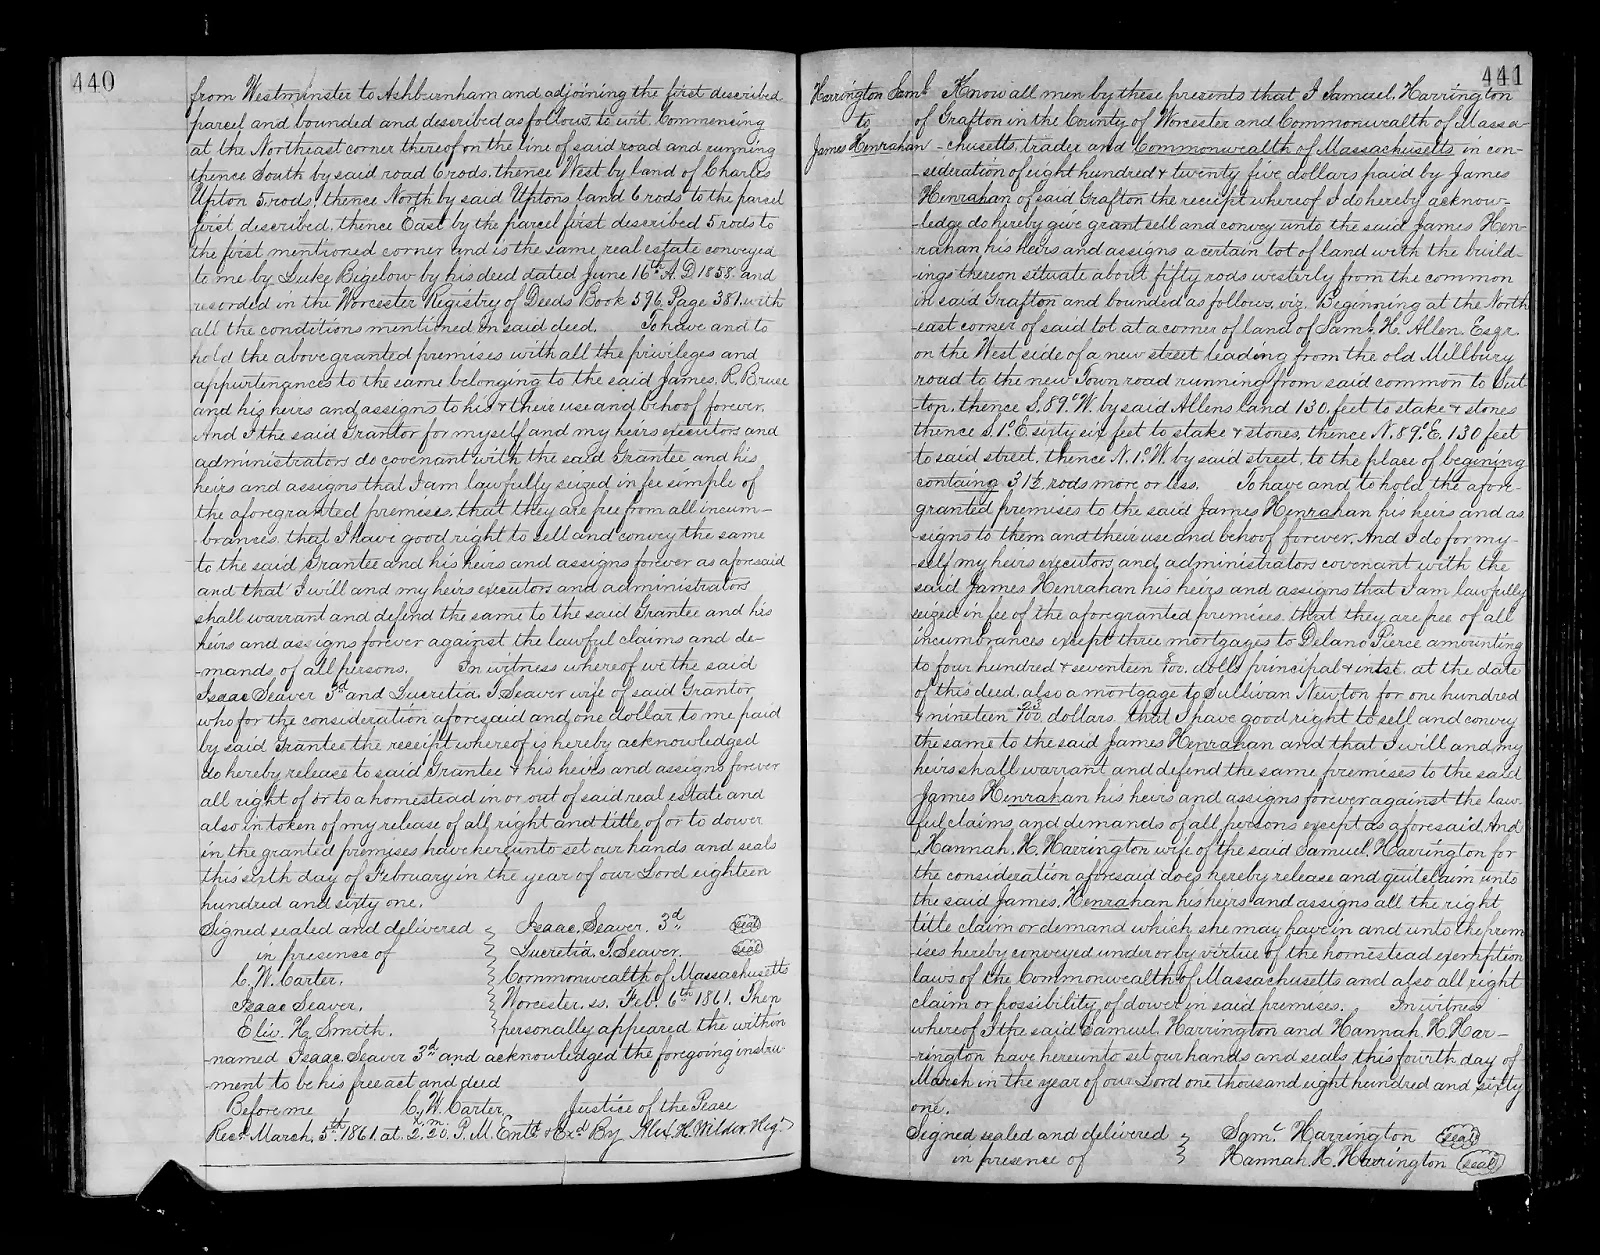 440
from Westminster to Ashburnham and adjoining the first described
parcel and bounded and described as follows, to wit. Commencing
at the Northeast corner thereof on the line of said road and running
thence South by said road 6 rods. thence West by land of Charles
Upton 5 rods, thence North by said Uptons land 6 rods to the parcel
first described, thence East by the parcel first described 5 rods to
the first mentioned corner and is the same real estate conveyed
to me by Luke Bigelow by his deed dated June 16th A. D 1858. and
recorded in the Worcester Registry of Deeds Book 596 Page 381. with
all the conditions mentioned in said deed. To have and to
hold the above granted premises with all the privileges and
appurtenances to the same belonging to the said James. R. Bruce
and his heirs and assigns to his & their use and behoof forever.
And I the said Grantor for myself and my heirs executors and
administrators do covenant with the said Grantee and his
heirs and assigns that I am lawfully seized in fee simple of
the aforegranted premises, that they are free from all incum-
-brances. that I have good right to sell and convey the same
to the said Grantee and his heirs and assigns forever as aforesaid
and that I will and my heirs executors and administrators
shall warrant and defend the same to the said Grantee and his
heirs and assigns forever against the lawful claims and de-
-mands of all persons. In witness whereof we the said
Isaac Seaver 3d and Lucretia. T. Seaver wife of said Grantor
who for the consideration aforesaid and one dollar to me paid
by said Grantee the receipt whereof is hereby acknowledged
do hereby release to said Grantee & his heirs and assigns forever
all right of or to a homestead in or out of said real estate and
also in token of my release of all right and title of or to dower
in the granted premises have hereunto set our hands and seals
this sixth day of February in the year of our Lord eighteen
hundred and sixty one.
Signed sealed and delivered Isaac. Seaver. 3d seal
in presence of Lucretia. T. Seaver. seal
C. W. Carter. Commonwealth of Massachusetts
Isaac Seaver. Worcester. ss. Feb. 6th 1861. Then
H. Smith. personally appeared the within
named Isaac. Seaver 3d and acknowledged the foregoing instru-
-ment to be his free act and deed
Before me C. W. Carter Justice of the Peace
Recd. March. 5th 1861. at 2h. 20m. P. M. Entd. & Exd By Alex. H. Wilder. Regr
441
Harrington Saml.
to
James Henrahan
Know all men by these presents that I Samuel. Harrington
of Grafton in the County of Worcester and Commonwealth of Massa-
-chusetts, trader and Commonwealth of Massachusetts in con-
-sederation of eight hundred & twenty five dollars paid by James
Henrahan of said Grafton the receipt whereof I do hereby acknow-
-ledge do hereby give grant sell and convey unto the said James Hen-
-rahan his heirs and assigns a certain lot of land with the build-
-ings thereon situate about fifty rods westerly from the common
in said Grafton and bounded as follows, viz. Beginning at the North
east corner of said lot at a corner of land of Saml. H. Allen. Esqr.
on the West side of a new street leading from the old Millbury
road to the new Town road running from said common to Sut-
-ton. thence S. 89° W. by said Allens land 130. feet to stake & stones
thence S. 1° E. sixty six feet to stake & stones, thence N. 89° E. 130 feet
to said street, thence N. 1° W. by said street, to the place of begining
containg 31½ rods more or less. To have and to hold the afore-
granted premises to the said James Henrahan his heirs and as
-signs to them and their use and behoof forever. And I do for my-
-self my heirs executors, and administrators covenant with the
said James Henrahan his heirs and assigns that I am lawfully
seized in fee of the aforegranted premises, that they are free of all
incumbrances except three mortgages to Delano Pierce amounting
to four hundred & seventeen dolls principal & intst. at the date
of this deed. also a mortgage to Sullivan Newton for one hundred
& nineteen 23/100 dollars. that I have good right to sell and convey
the same to the said James Henrahan and that I will and my
heirs shall warrant and defend the same premises to the said
James Henrahan his heirs and assigns forever against the law-
ful claims and demands of all persons except as aforesaid. And
Hannah. H. Harrington wife of the said Samuel. Harrington for
the consideration aforesaid does hereby release and quitclaim unto
the said James. Henrahan his heirs and assigns all the right
title claim or demand which she may have in and unto the prem
ises hereby conveyed under or by virtue of the homestead exemption
laws of the Commonwealth of Massachusetts and also all right
claim or possibility of dower in said premises. In witness
whereof I the said Samuel. Harrington and Hannah. H. Har-
-rington have hereunto set our hands and seals, this fourth day of
March in the year of our Lord one thousand eight hundred and sixty
one.
Signed sealed and delivered Saml. Harrington seal
in presence of Hannah. H. Harrington seal